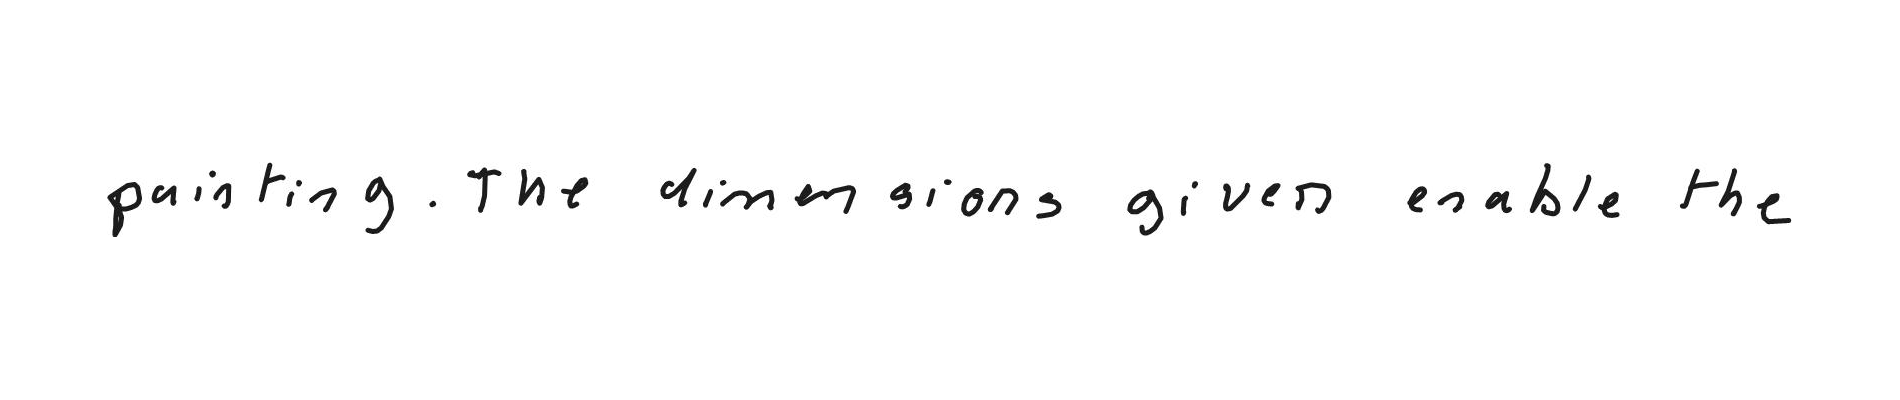 painting. The dimensions given enable the